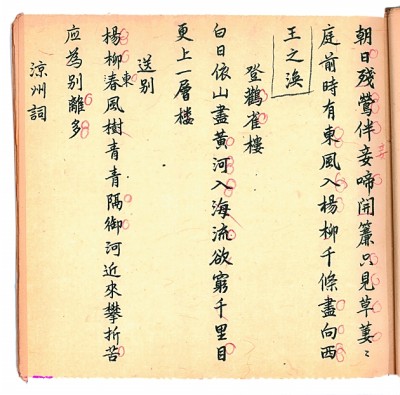 朝日殘鶯伴妾啼開簾只見草萋〻
庭前時有東風入楊柳千條盡向西
王之渙
登鸛雀樓
白日依山盡黃河入海流欲窮千里目
更上一層樓
送別
楊柳東春風樹青青隔御河近來攀折苦
应為別離多
涼州詞